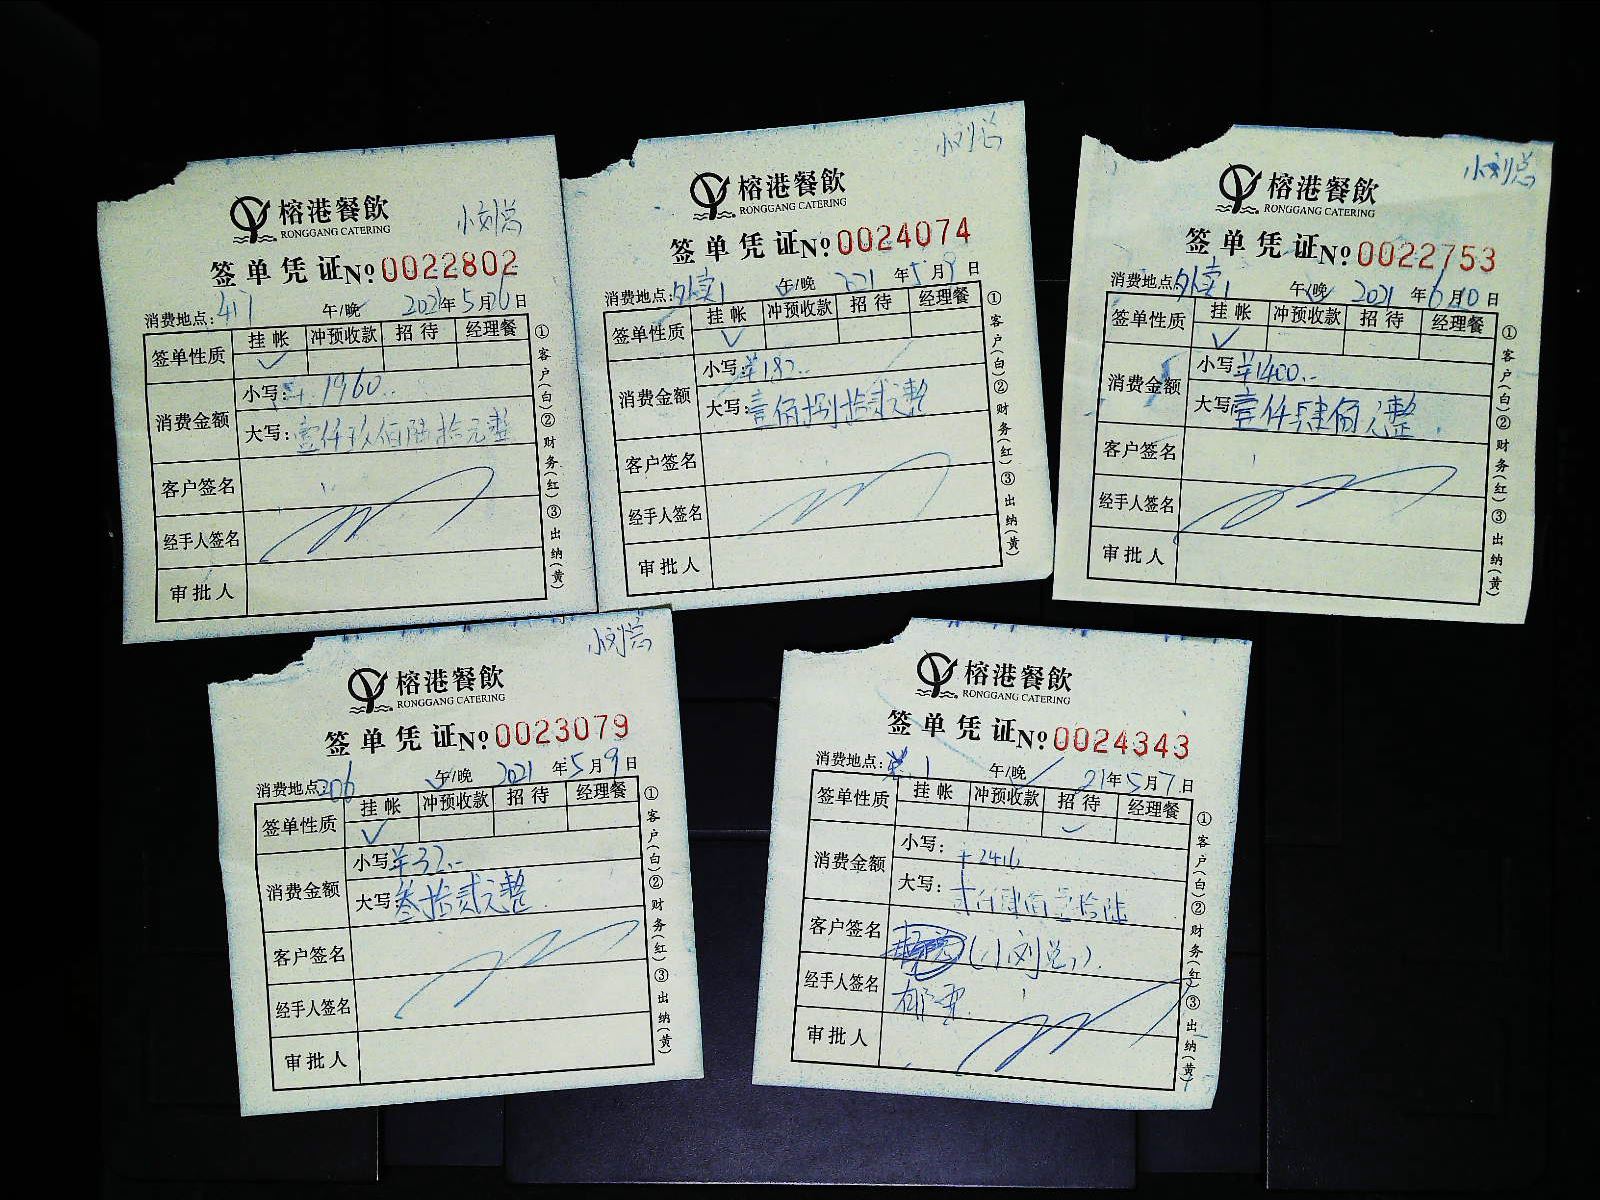 榕港餐飲
RONGGANG CATERING
小刘总
签单凭证 № 0022802
消费地点: 417 午/晚 2021年5月6日
签单性质 挂帐 冲预收款 招待 经理餐
✓
消费金额 小写: ¥1960..
大写: 壹仟玖佰陆拾元整
客户签名
经手人签名
审批人
①客户(白)②财务(红)③出纳(黄)
小刘总
榕港餐飲
RONGGANG CATERING
签单凭证 № 0024074
消费地点: 外卖1 午/晚 2021年5月9日
签单性质 挂帐 冲预收款 招待 经理餐
✓
消费金额 小写: ¥182..
大写: 壹佰捌拾贰元整
客户签名
经手人签名
审批人
①客户(白)②财务(红)③出纳(黄)
小刘总
榕港餐飲
RONGGANG CATERING
签单凭证 № 0022753
消费地点: 外卖1 午/晚 2021年6月10日
签单性质 挂帐 冲预收款 招待 经理餐
✓
消费金额 小写 ¥1400..
大写 壹仟肆佰元整
客户签名
经手人签名
审批人
①客户(白)②财务(红)③出纳(黄)
小刘总
榕港餐飲
RONGGANG CATERING
签单凭证 № 0023079
消费地点: 206 午/晚 2021年5月9日
签单性质 挂帐 冲预收款 招待 经理餐
✓
消费金额 小写 ¥32..
大写 叁拾贰元整
客户签名
经手人签名
审批人
①客户(白)②财务(红)③出纳(黄)
榕港餐飲
RONGGANG CATERING
签单凭证 № 0024343
消费地点: 1 午/晚 21年5月7日
签单性质 挂帐 冲预收款 招待 经理餐
✓
消费金额 小写: 2416
大写: 贰仟肆佰壹拾陆
客户签名 (小刘总)
经手人签名
审批人
①客户(白)②财务(红)③出纳(黄)